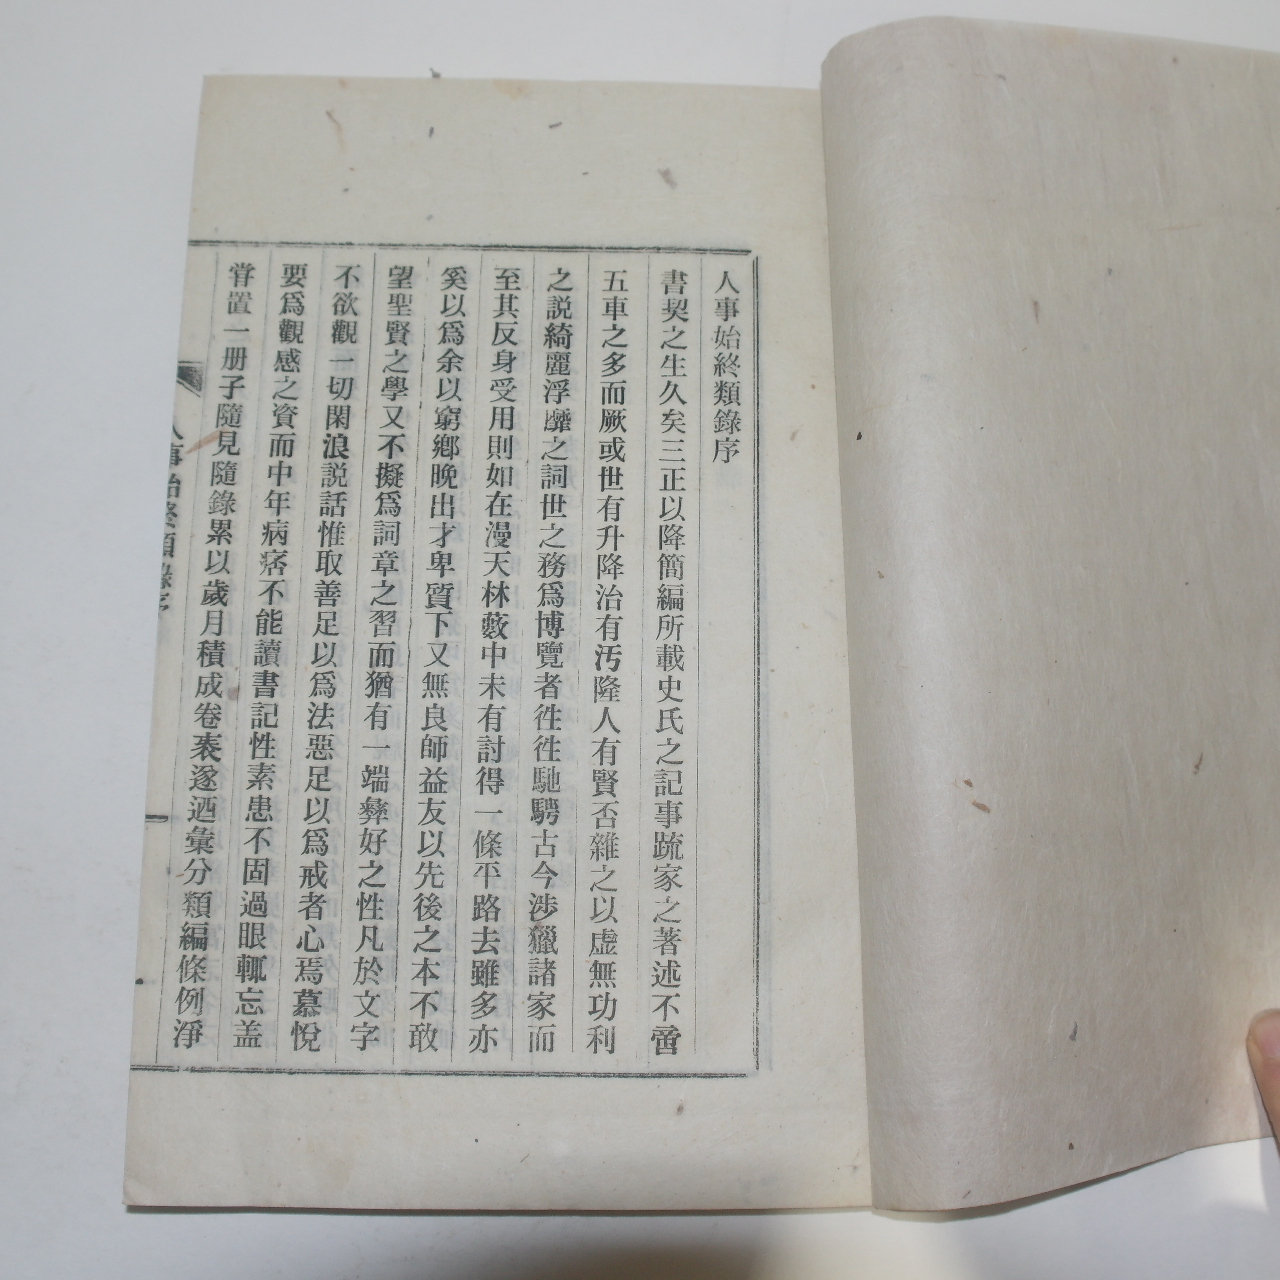 人事始終類錄序
書契之生久矣三正以降簡編所載史氏之記事䟽家之著述不啻
五車之多而厥或世有升降治有汚隆人有賢否雜之以虛無功利
之說綺麗浮靡之詞世之務爲博覽者徃徃馳騁古今涉獵諸家而
至其反身受用則如在漫天林藪中未有討得一條平路去雖多亦
奚以爲余以窮鄕晚出才卑質下又無良師益友以先後之本不敢
望聖賢之學又不擬爲詞章之習而猶有一端彝好之性凡於文字
不欲觀一切閑浪説話惟取善足以爲法惡足以爲戒者心焉慕悅
要爲觀感之資而中年病痞不能讀書記性素患不固過眼輒忘盖
甞置一册子隨見隨錄累以歲月積成卷袠遂迺彙分類編條例淨
人事始終類錄序